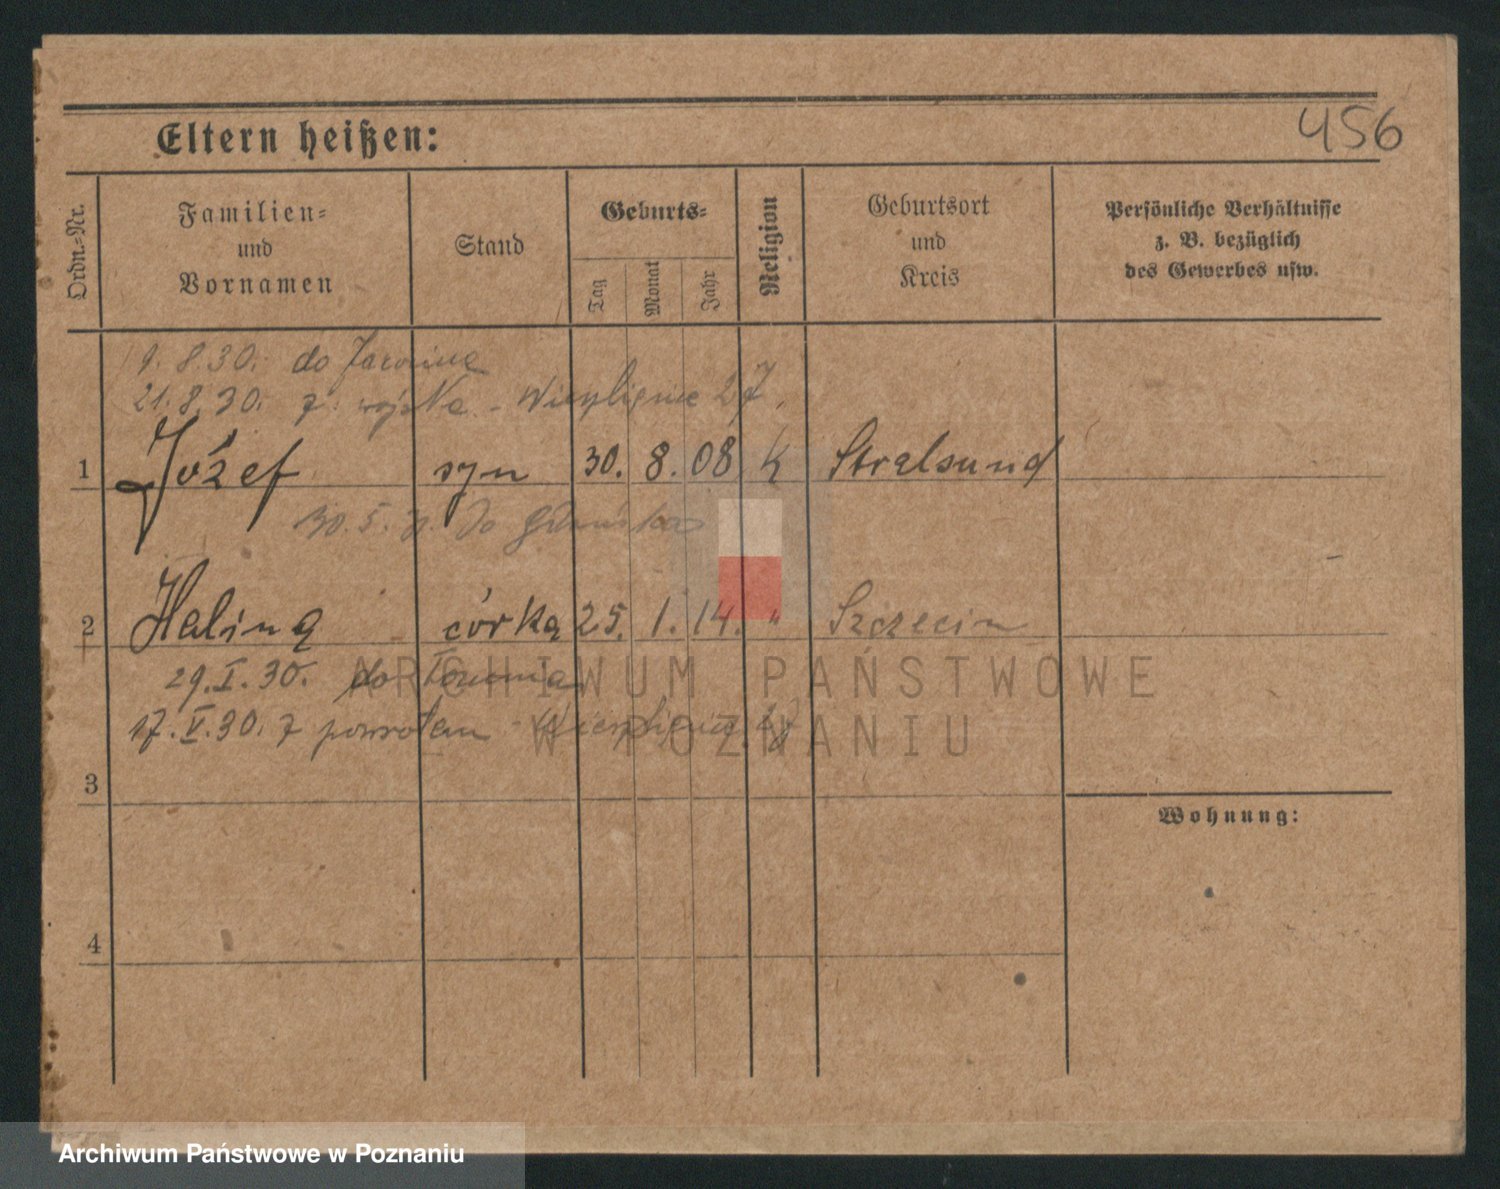 456
Eltern heißen:
Ordn.=Nr.
Familien=
und
Vornamen
Stand
Geburts=
Tag
Monat
Jahr
Religion
Geburtsort
und
Kreis
Persönliche Verhältnisse
z. B. bezüglich
des Gewerbes usw.
9. 8. 30. do
21. 8. 30. z wojska - 27.
1 Józef syn 30. 8. 08 k Stralsund
30. 5. do Gdańska
2 Halina córka 25. 1. 14. " Szczecin
29. I. 30. do
17. V. 30. z powrotem
3
Wohnung:
4
ARCHIWUM PAŃSTWOWE
W POZNANIU
Archiwum Państwowe w Poznaniu